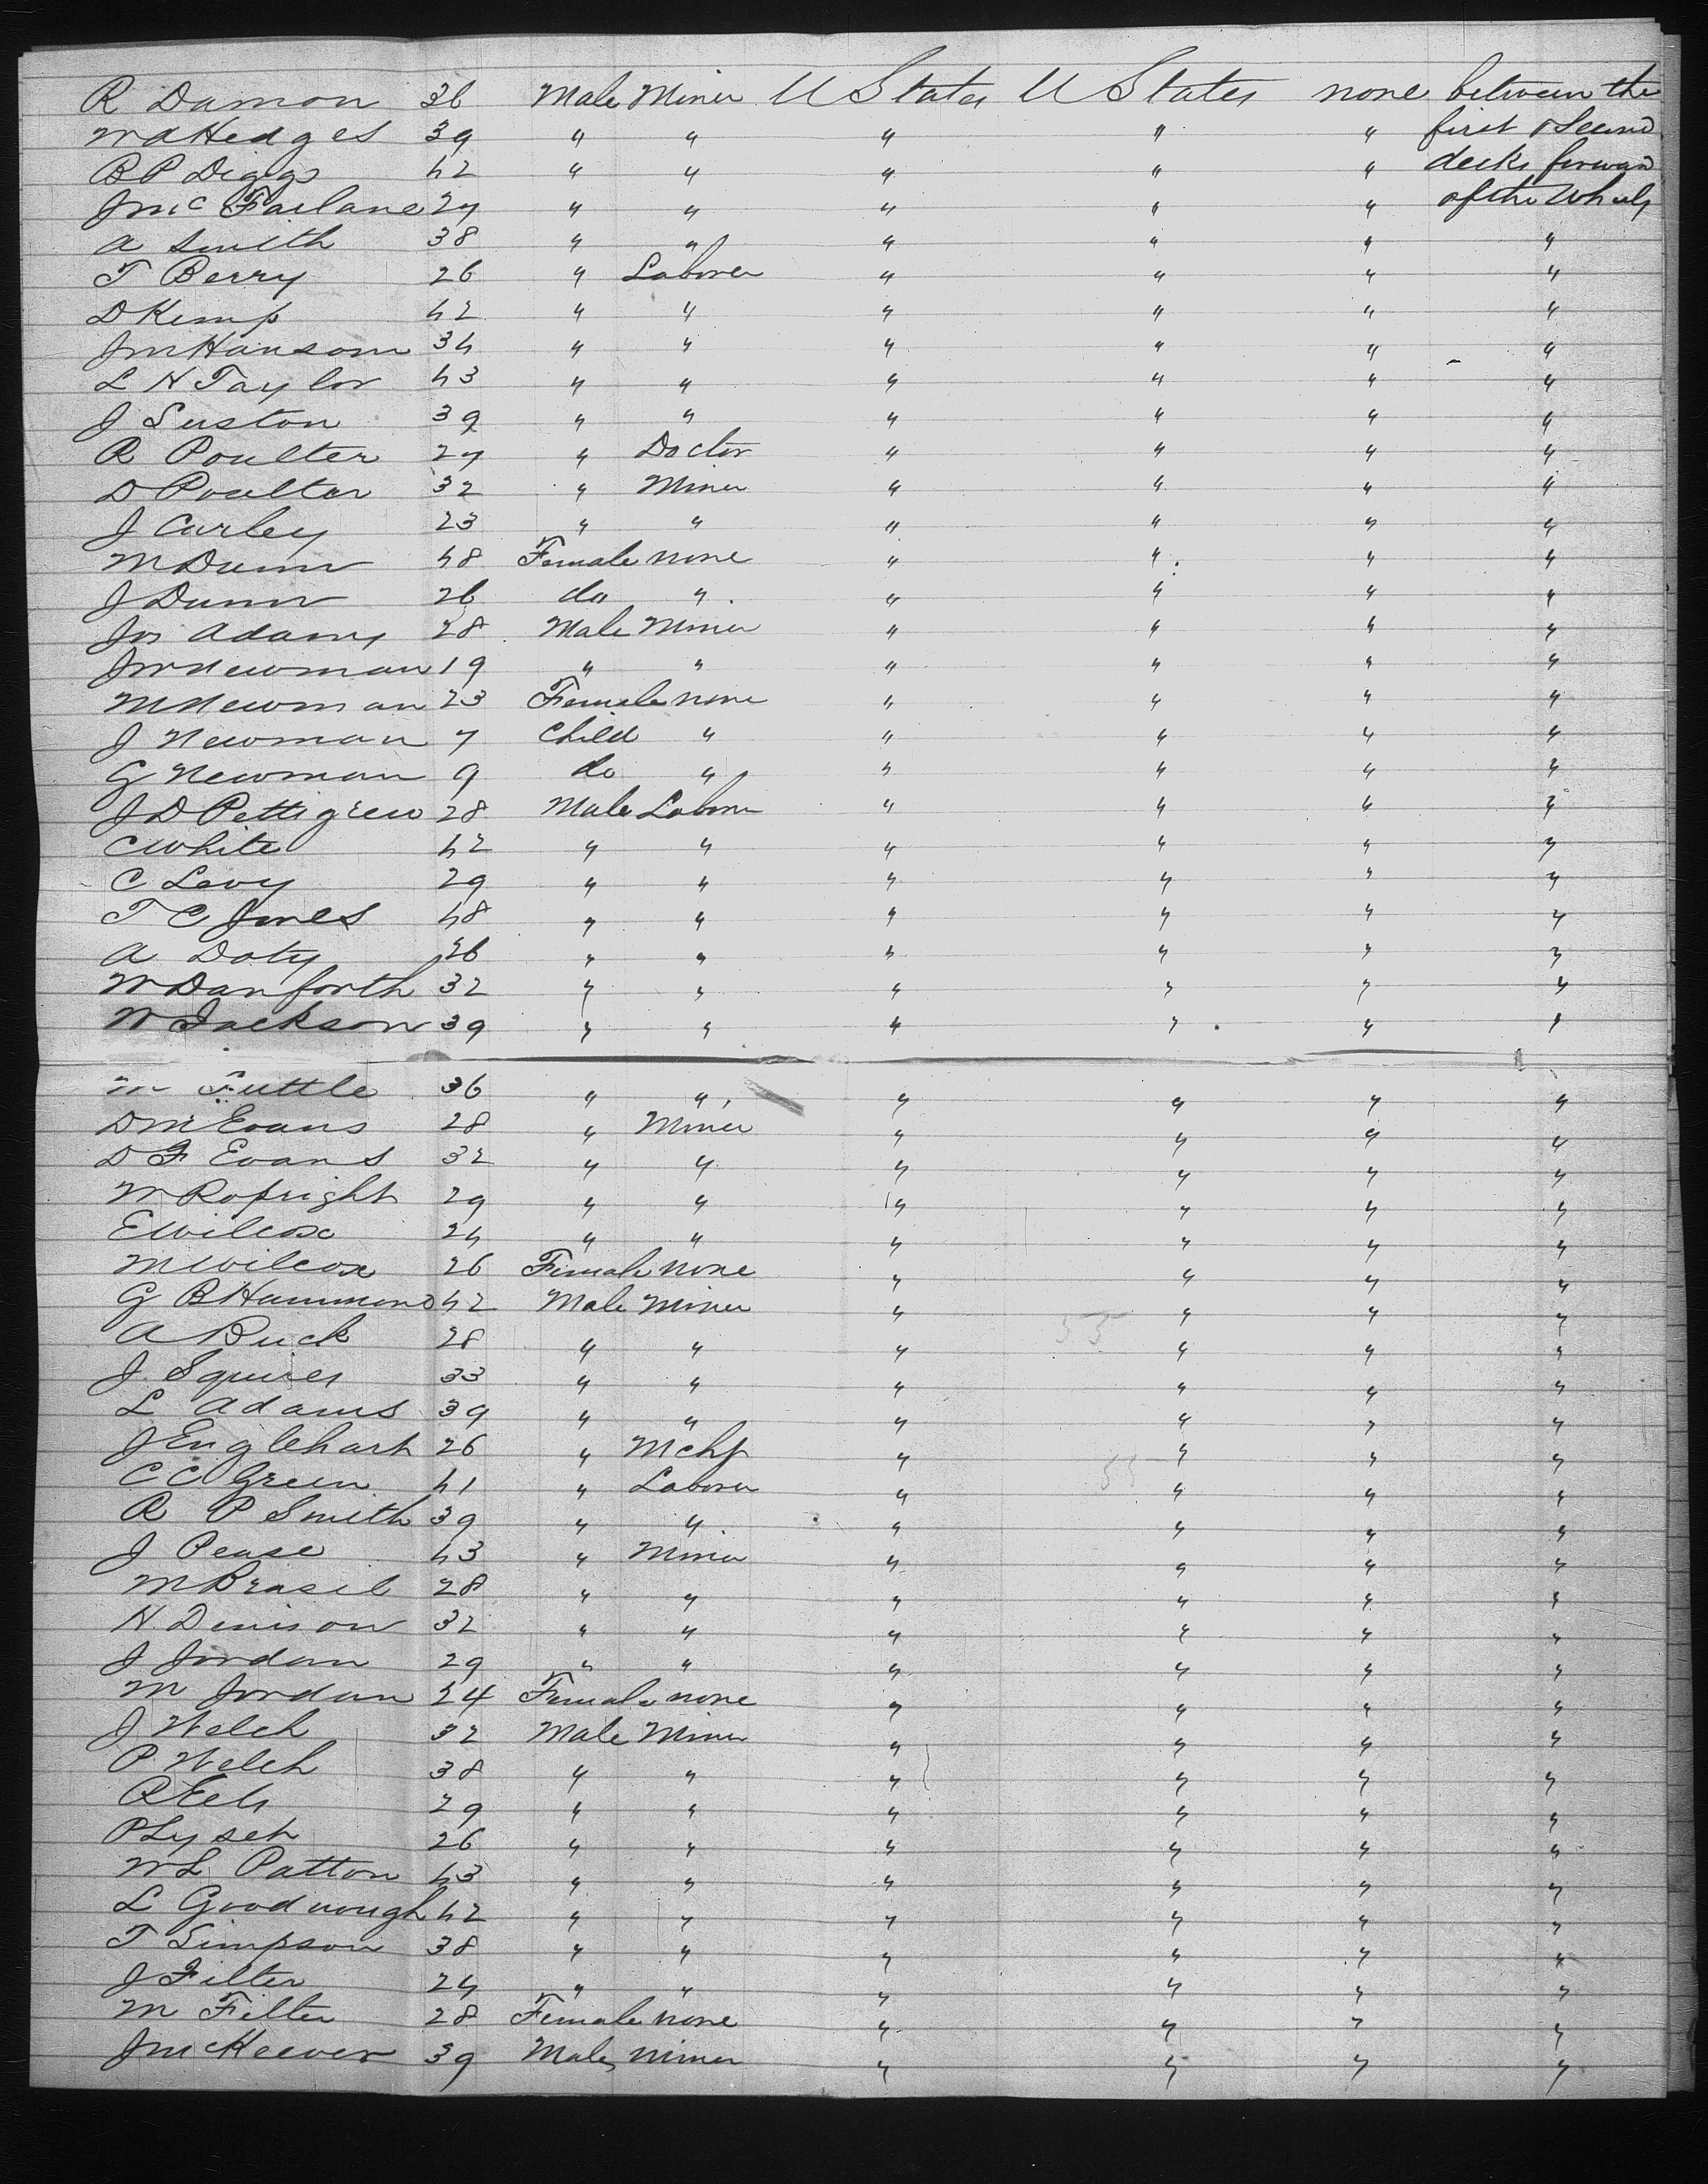 R Damon 36 Male Miner U States U States none between the
W A Hedges 39 " " " " " first & Second
B P Diggs 42 " " " " " decks forward
J McFarlane 27 " " " " " of the Wheels
A Smith 38 " " " " " "
T Berry 26 " Laborer " " " "
D Kemp 42 " " " " " "
J M Hansom 34 " " " " " "
L H Taylor 43 " " " " " "
J Suston 39 " " " " " "
R Poulter 27 " Doctor " " " "
D Poulter 32 " Miner " " " "
J Curley 23 " " " " " "
M Dunn 48 Female none " " " "
J Dunn 26 do " " " " "
Jos Adams 28 Male Miner " " " "
J W Newman 19 " " " " " "
M Newman 23 Female none " " " "
J Newman 7 Child " " " " "
G Newman 9 do " " " " "
J D Pettigrew 28 Male Laborer " " " "
C White 42 " " " " " "
C Levy 29 " " " " " "
T C Jones 48 " " " " " "
A Doty 26 " " " " " "
W Danforth 32 " " " " " "
W Jackson 39 " " " " " "
M Tuttle 36 " " " " " "
D M Evans 28 " Miner " " " "
D F Evans 32 " " " " " "
W Ropright 29 " " " " " "
E Wilcox 24 " " " " " "
M Wilcox 26 Female none " " " "
G B Hammond 42 Male Miner " " " "
A Buck 28 " " " " " "
J Squires 33 " " " " " "
L Adams 39 " " " " " "
J Englehart 26 " Mcht " " " "
C C Green 41 " Laborer " " " "
R P Smith 39 " " " " " "
J Pease 43 " Miner " " " "
M Brasil 28 " " " " " "
H Denison 32 " " " " " "
J Jordan 29 " " " " " "
M Jordan 24 Female none " " " "
J Welch 32 Male Miner " " " "
P Welch 38 " " " " " "
R Eels 29 " " " " " "
P Lyset 26 " " " " " "
W L Patton 43 " " " " " "
L Goodnough 42 " " " " " "
T Simpson 38 " " " " " "
J Filter 24 " " " " " "
M Filter 28 Female none " " " "
J McKeever 39 Male Miner " " " "